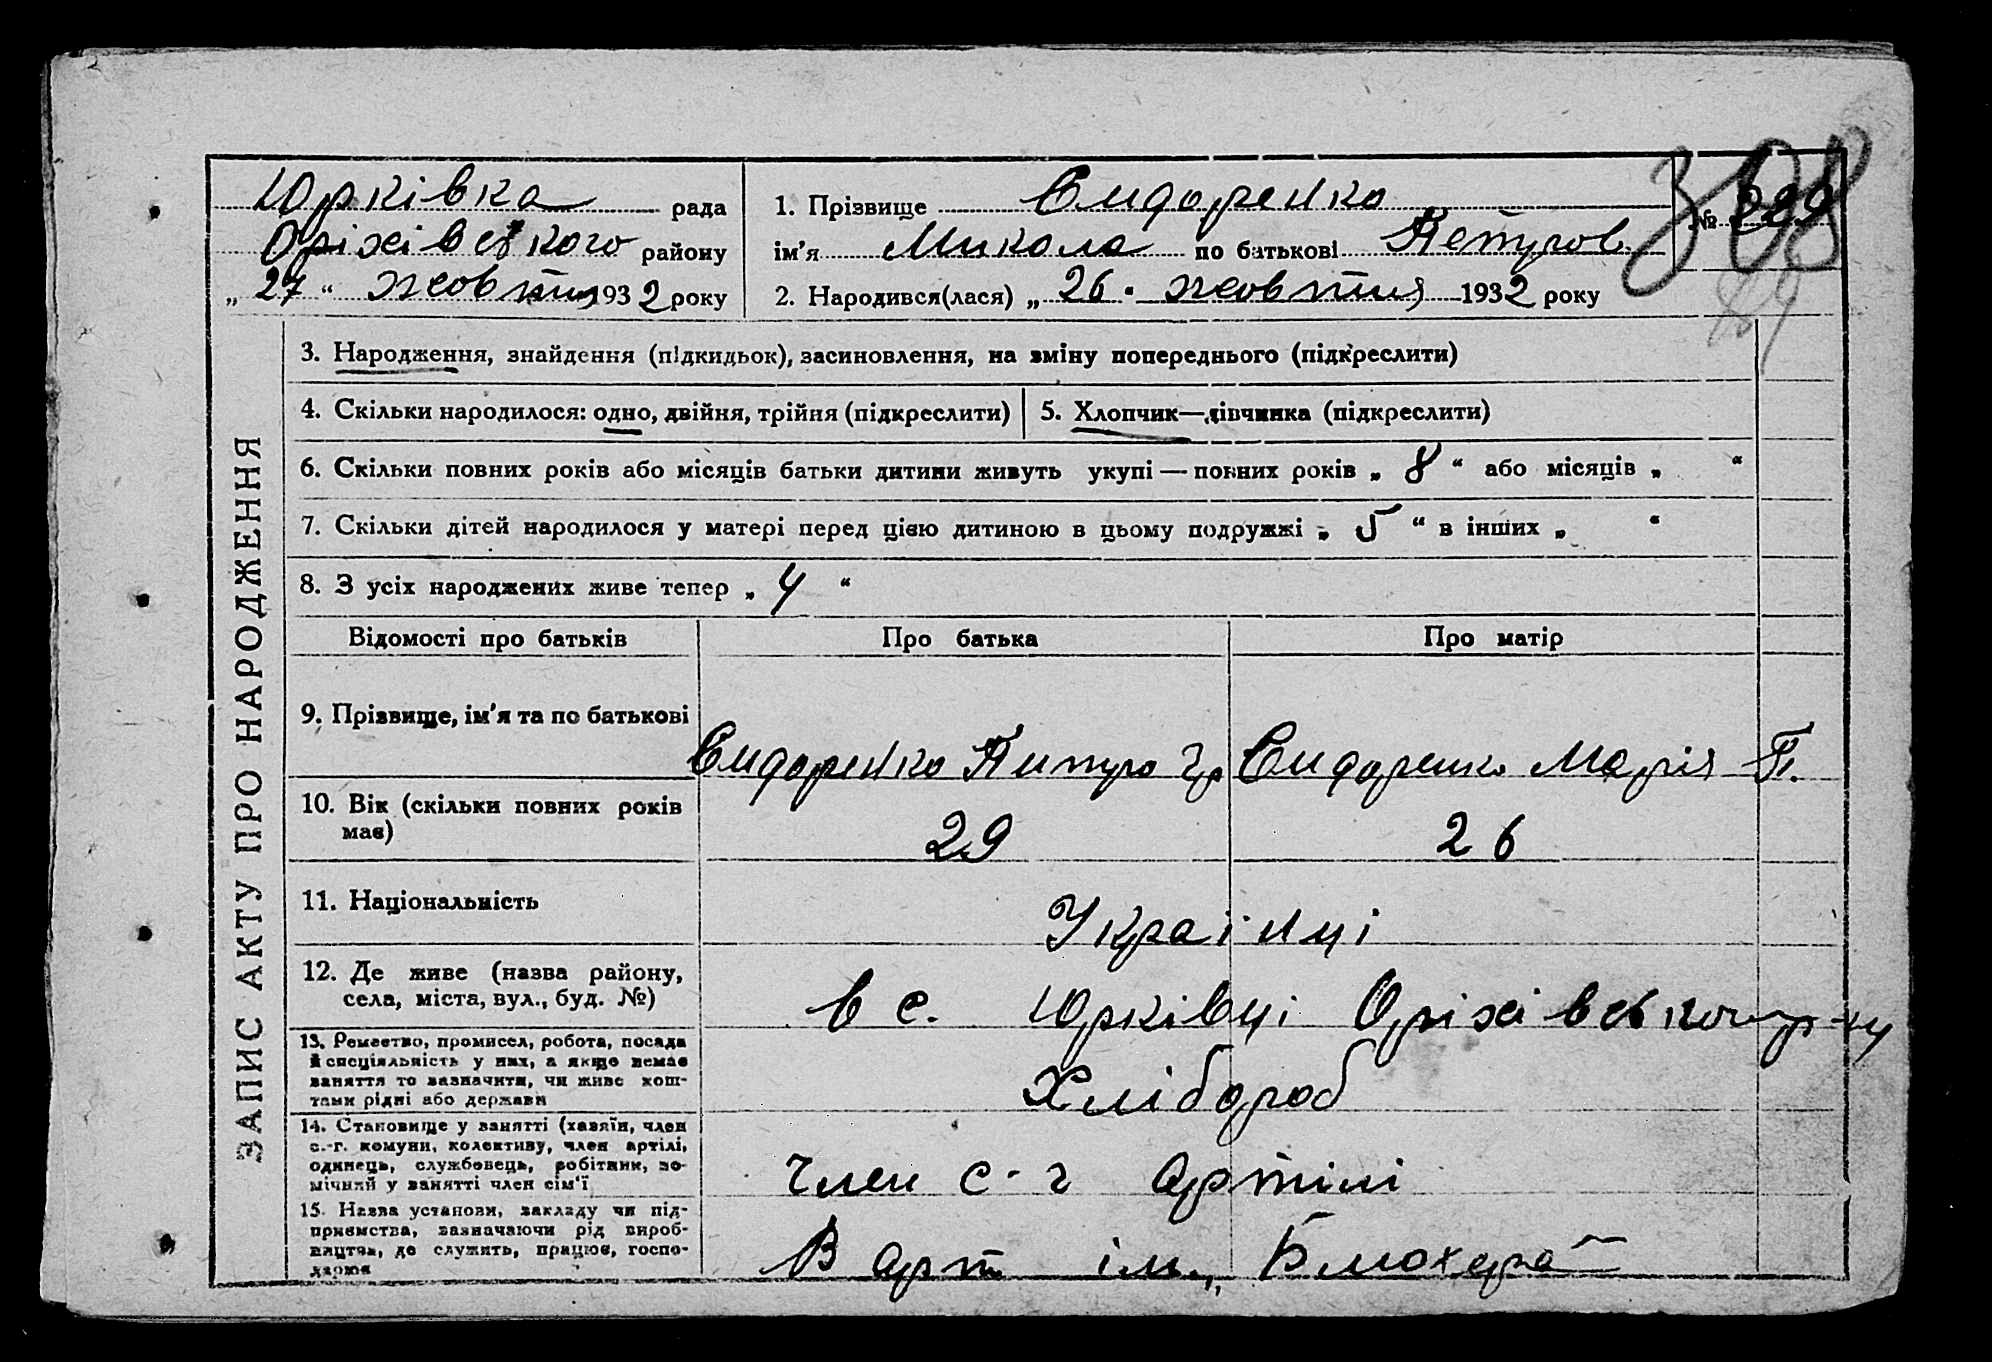 Юрківка рада
Оріхівського району
„ 27 “ жовтня 1932 року
1. Прізвище Сидоренко
ім'я Микола по батькові Петров.
2. Народився(лася) „ 26 “ жовтня 1932 року
№
308
ЗАПИС АКТУ ПРО НАРОДЖЕННЯ
3. Народження, знайдення (підкидьок), засиновлення, на зміну попереднього (підкреслити)
4. Скільки народилося: одно, двійня, трійня (підкреслити)
5. Хлопчик—дівчинка (підкреслити)
6. Скільки повних років або місяців батьки дитини живуть укупі — повних років „ 8 “ або місяців „ “
7. Скільки дітей народилося у матері перед цією дитиною в цьому подружжі „ 5 “ в інших „ “
8. З усіх народжених живе тепер „ 4 “
Відомості про батьків
Про батька
Про матір
9. Прізвище, ім'я та по батькові
Сидоренко Питро Гр
Сидоренко Марія П.
10. Вік (скільки повних років
має)
29
26
11. Національність
Українці
12. Де живе (назва району,
села, міста, вул., буд. №)
в с. Юрківці Оріхівського р-ну
13. Ремество, промисел, робота, посада
й спеціяльність у них, а якщо немає
заняття то зазначити, чи живе кош-
тами рідні або держави
Хлібороб
14. Становище у занятті (хазяїн, член
с.-г. комуни, колективу, член артілі,
одинець, службовець, робітник, по-
мічний у занятті член сім'ї
Член с-г артілі
15. Назва установи, закладу чи під-
приємства, зазначаючи рід вироб-
ництва, де служить, працює, госпо-
дарює
В арт ім. „ Блюхера